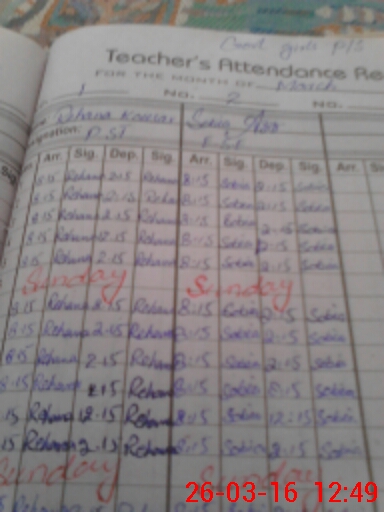 Govt girls P/S
Teacher's Attendance Re
FOR THE MONTH OF March
1 NO. 2 NO.
Kousar
P.ST
Arr. Sig. Dep. Sig. Arr. Sig. Dep. Sig. Arr. Si
8:15 Rehana 2:15 Rehana 8:15 Sobia 2:15 Sobia
8:15 Rehana 2:15 Reha 8:15 Sobia 2:15 Sobia
8:15 Rehana 2:15 Rehana 8:15 Sobia 2:15 Sobia
8:15 Rehana 12:15 Rehana 8:15 Sobia 12:15 Sobia
8:15 Rehana 2:15 Rehana 8:15 Sobia 2:15 Sobia
Sunday Sunday
8:15 Rehana 2:15 Rehana 8:15 Sobia 2:15 Sobia
8:15 Rehana 2:15 Rehana 8:15 Sobia 2:15 Sobia
8:15 Rehana 2:15 Rehana 8:15 Sobia 2:15 Sobia
8:15 Rehana 2:15 Rehana 8:15 Sobia 2:15 Sobia
15 Rehana 12:15 Rehana 8:15 Sobia 12:15 Sobia
15 Rehana 2:15 Rehana 8:15 Sobia 2:15 Sobia
Sunday Sunday
26-03-16 12:49